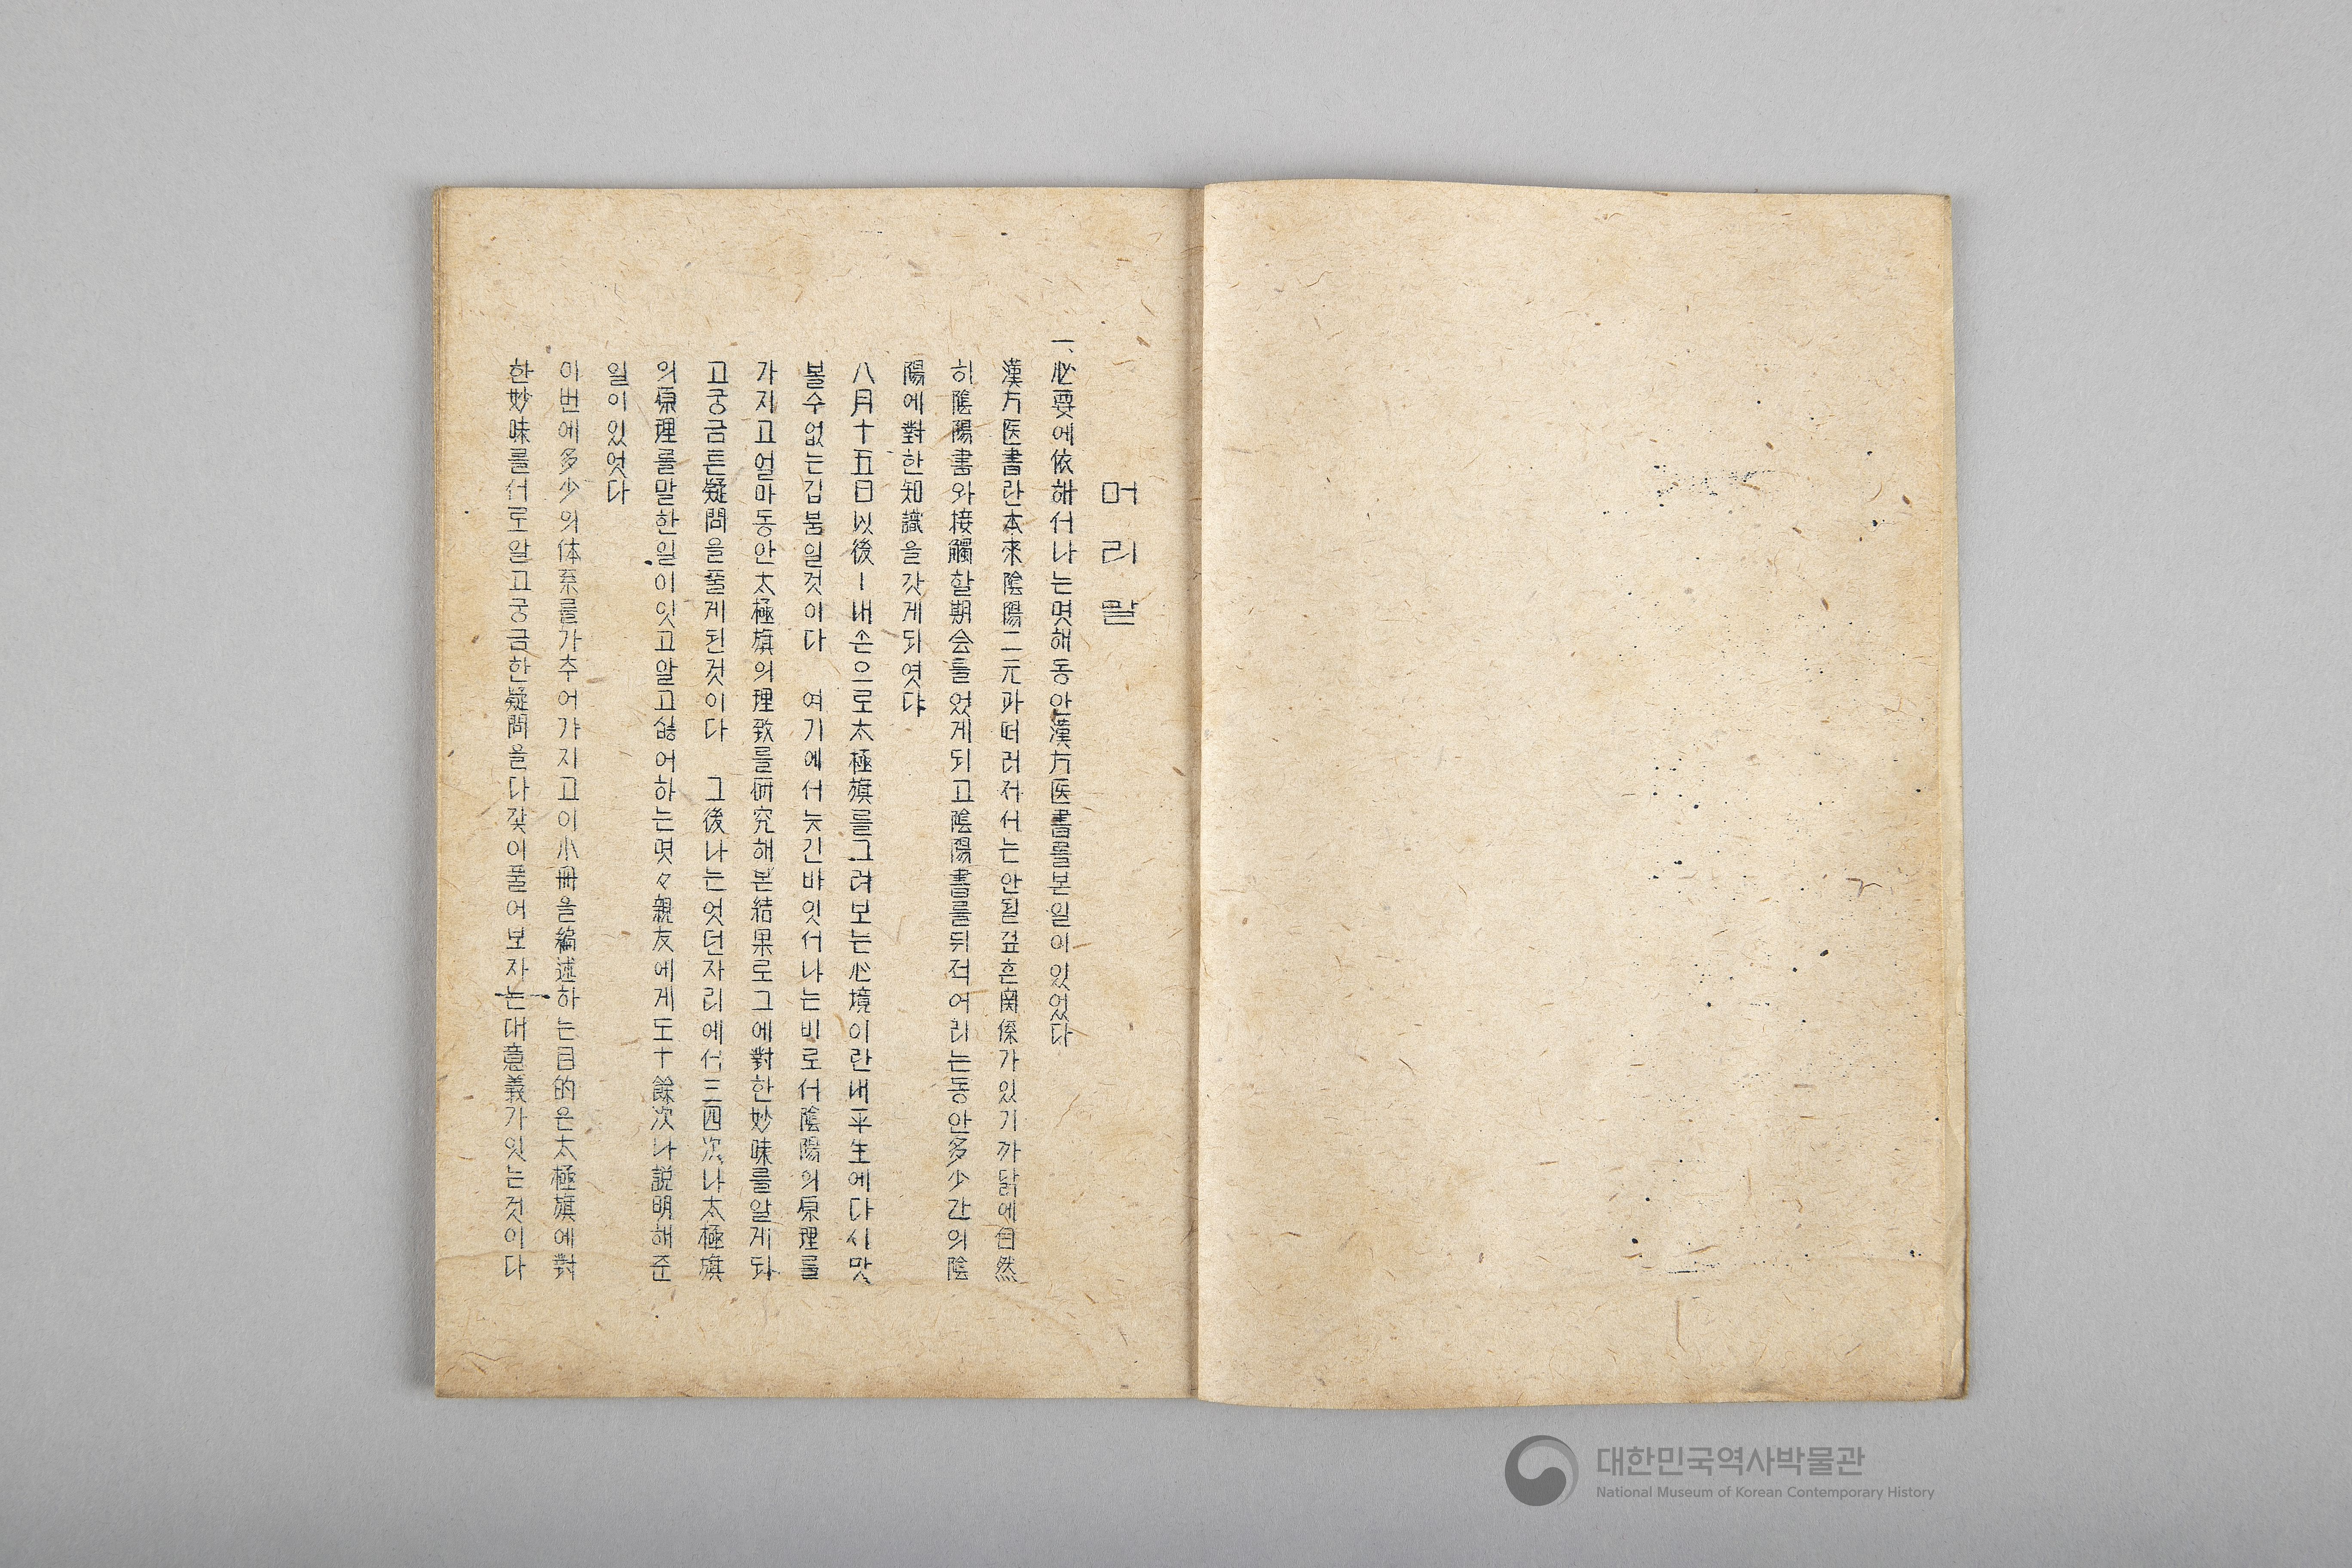 머리말
一、必要에依해서나는몃해동안漢方医書를본일이있었다
漢方医書란本來陰陽二元과떠러저서는안될깊흔関係가있기까닭에自然
히陰陽書와接觸할期会를었게되고陰陽書를뒤적어리는동안多少간의陰
陽에對한知識을갓게되엿다
八月十五日以後ㅣ내손으로太極旗를그려보는心境이란내平生에다시맛
볼수없는깁붐일것이다 여기에서늣긴바잇서나는비로서陰陽의原理를
가지고얼마동안太極旗의理致를硏究해본結果로그에對한妙味를알게되
고궁금튼疑問을풀게된것이다 그後나는엇던자리에서三四次나太極旗
의原理를말한일이잇고알고싶어하는몃々親友에게도十餘次나説明해준
일이있엇다
이번에多少의体系를가추어갸지고이小冊을編述하는目的은太極旗에對
한妙味를서로알고궁금한疑問을다갗이풀어보자는대意義가잇는것이다
대한민국역사박물관
National Museum of Korean Contemporary History